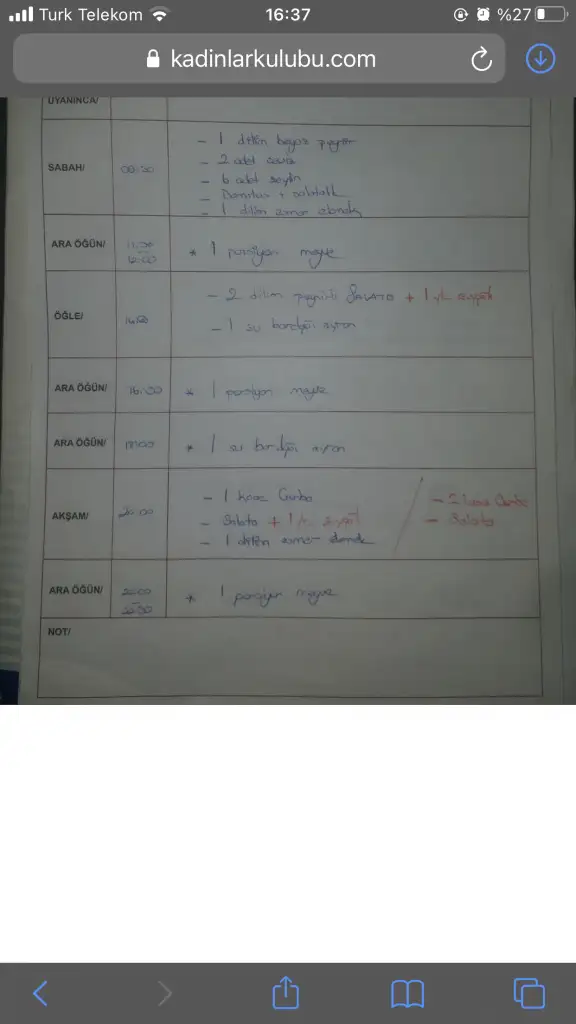 Turk Telekom 16:37 %27
kadinlarkulubu.com
UYANINCA/
SABAH/ 08:30
- 1 dilim beyaz peynir
- 2 adet ceviz
- 6 adet zeytin
- Domates + salatalık
- 1 dilim ekmek
ARA ÖĞÜN/
* 1 porsiyon meyve
ÖĞLE/
- 2 dilim peynirli SALATA + 1 yk.
- 1 su bardağı ayran
ARA ÖĞÜN/ 16:00
* 1 porsiyon meyve
ARA ÖĞÜN/
* 1 su bardağı ayran
AKŞAM/ 20:00
- 1 kase Çorba
- Salata + 1
- 1 dilim ekmek
- 2 kase Çorba
- Salata
ARA ÖĞÜN/
* 1 porsiyon meyve
NOT/